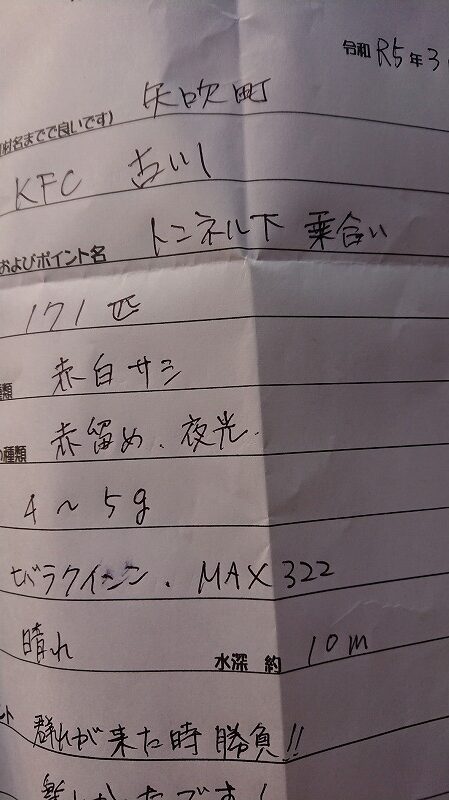 令和 R5年3
村名までで良いです) 矢吹町
KFC 古川
およびポイント名 トンネル下 乗合い
171匹
種類 赤白サシ
の種類 赤留め、夜光.
4〜5g
MAX 322
晴れ 水深 約 10m
ント 群れが来た時勝負!!
楽しかったです!